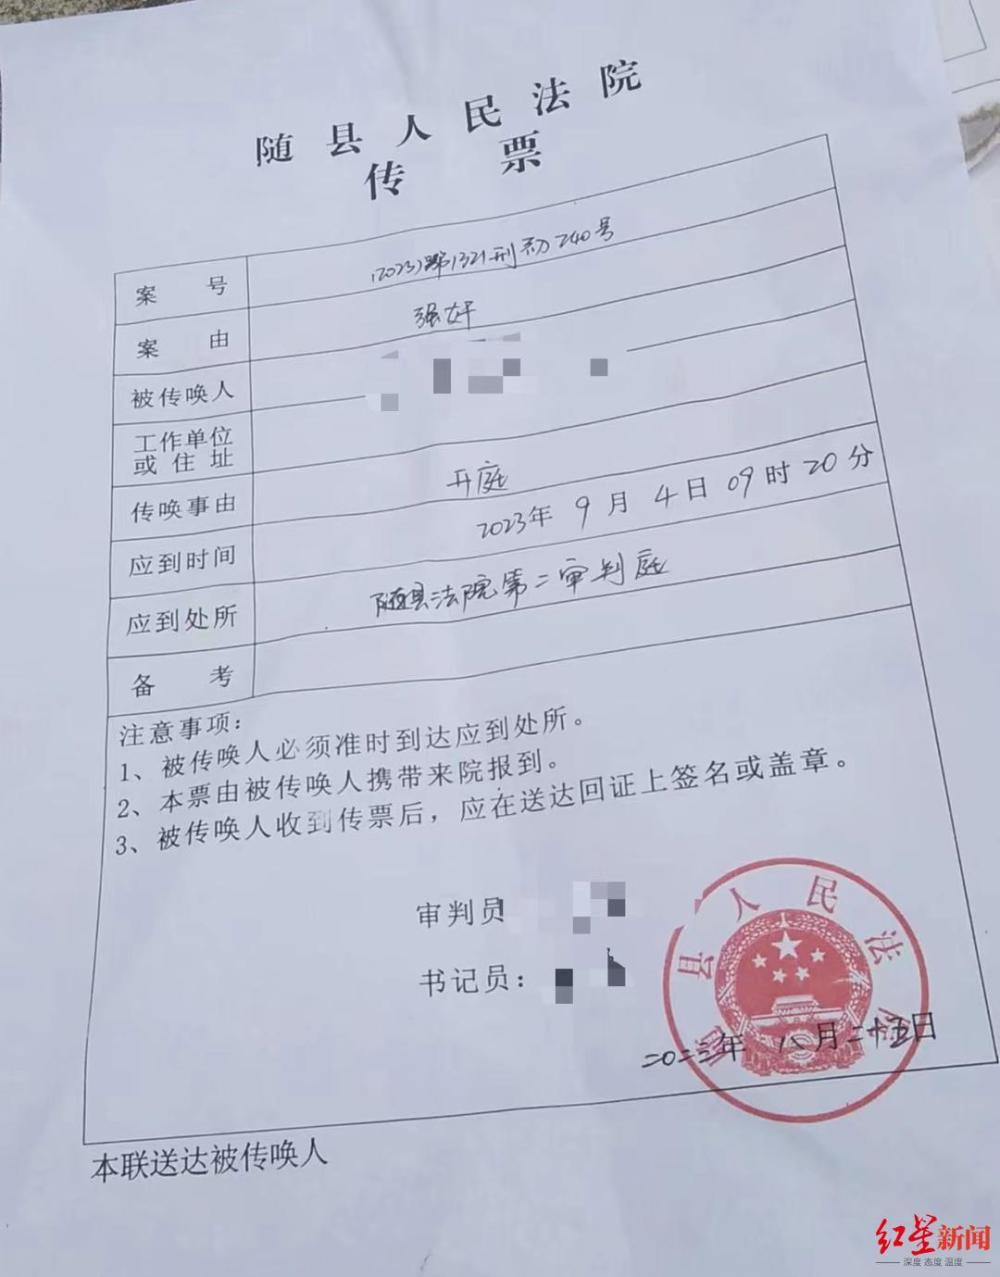 随县人民法院
传票
案号 (2023)鄂1321刑初240号
案由 强奸
被传唤人
工作单位
或住址
传唤事由 开庭
应到时间 2023年9月4日09时20分
应到处所 随县法院第二审判庭
备考
注意事项：
1、被传唤人必须准时到达应到处所。
2、本票由被传唤人携带来院报到。
3、被传唤人收到传票后，应在送达回证上签名或盖章。
审判员
书记员：
县人民法院
二〇二三年八月二十五日
本联送达被传唤人
红星新闻
深度 态度 温度